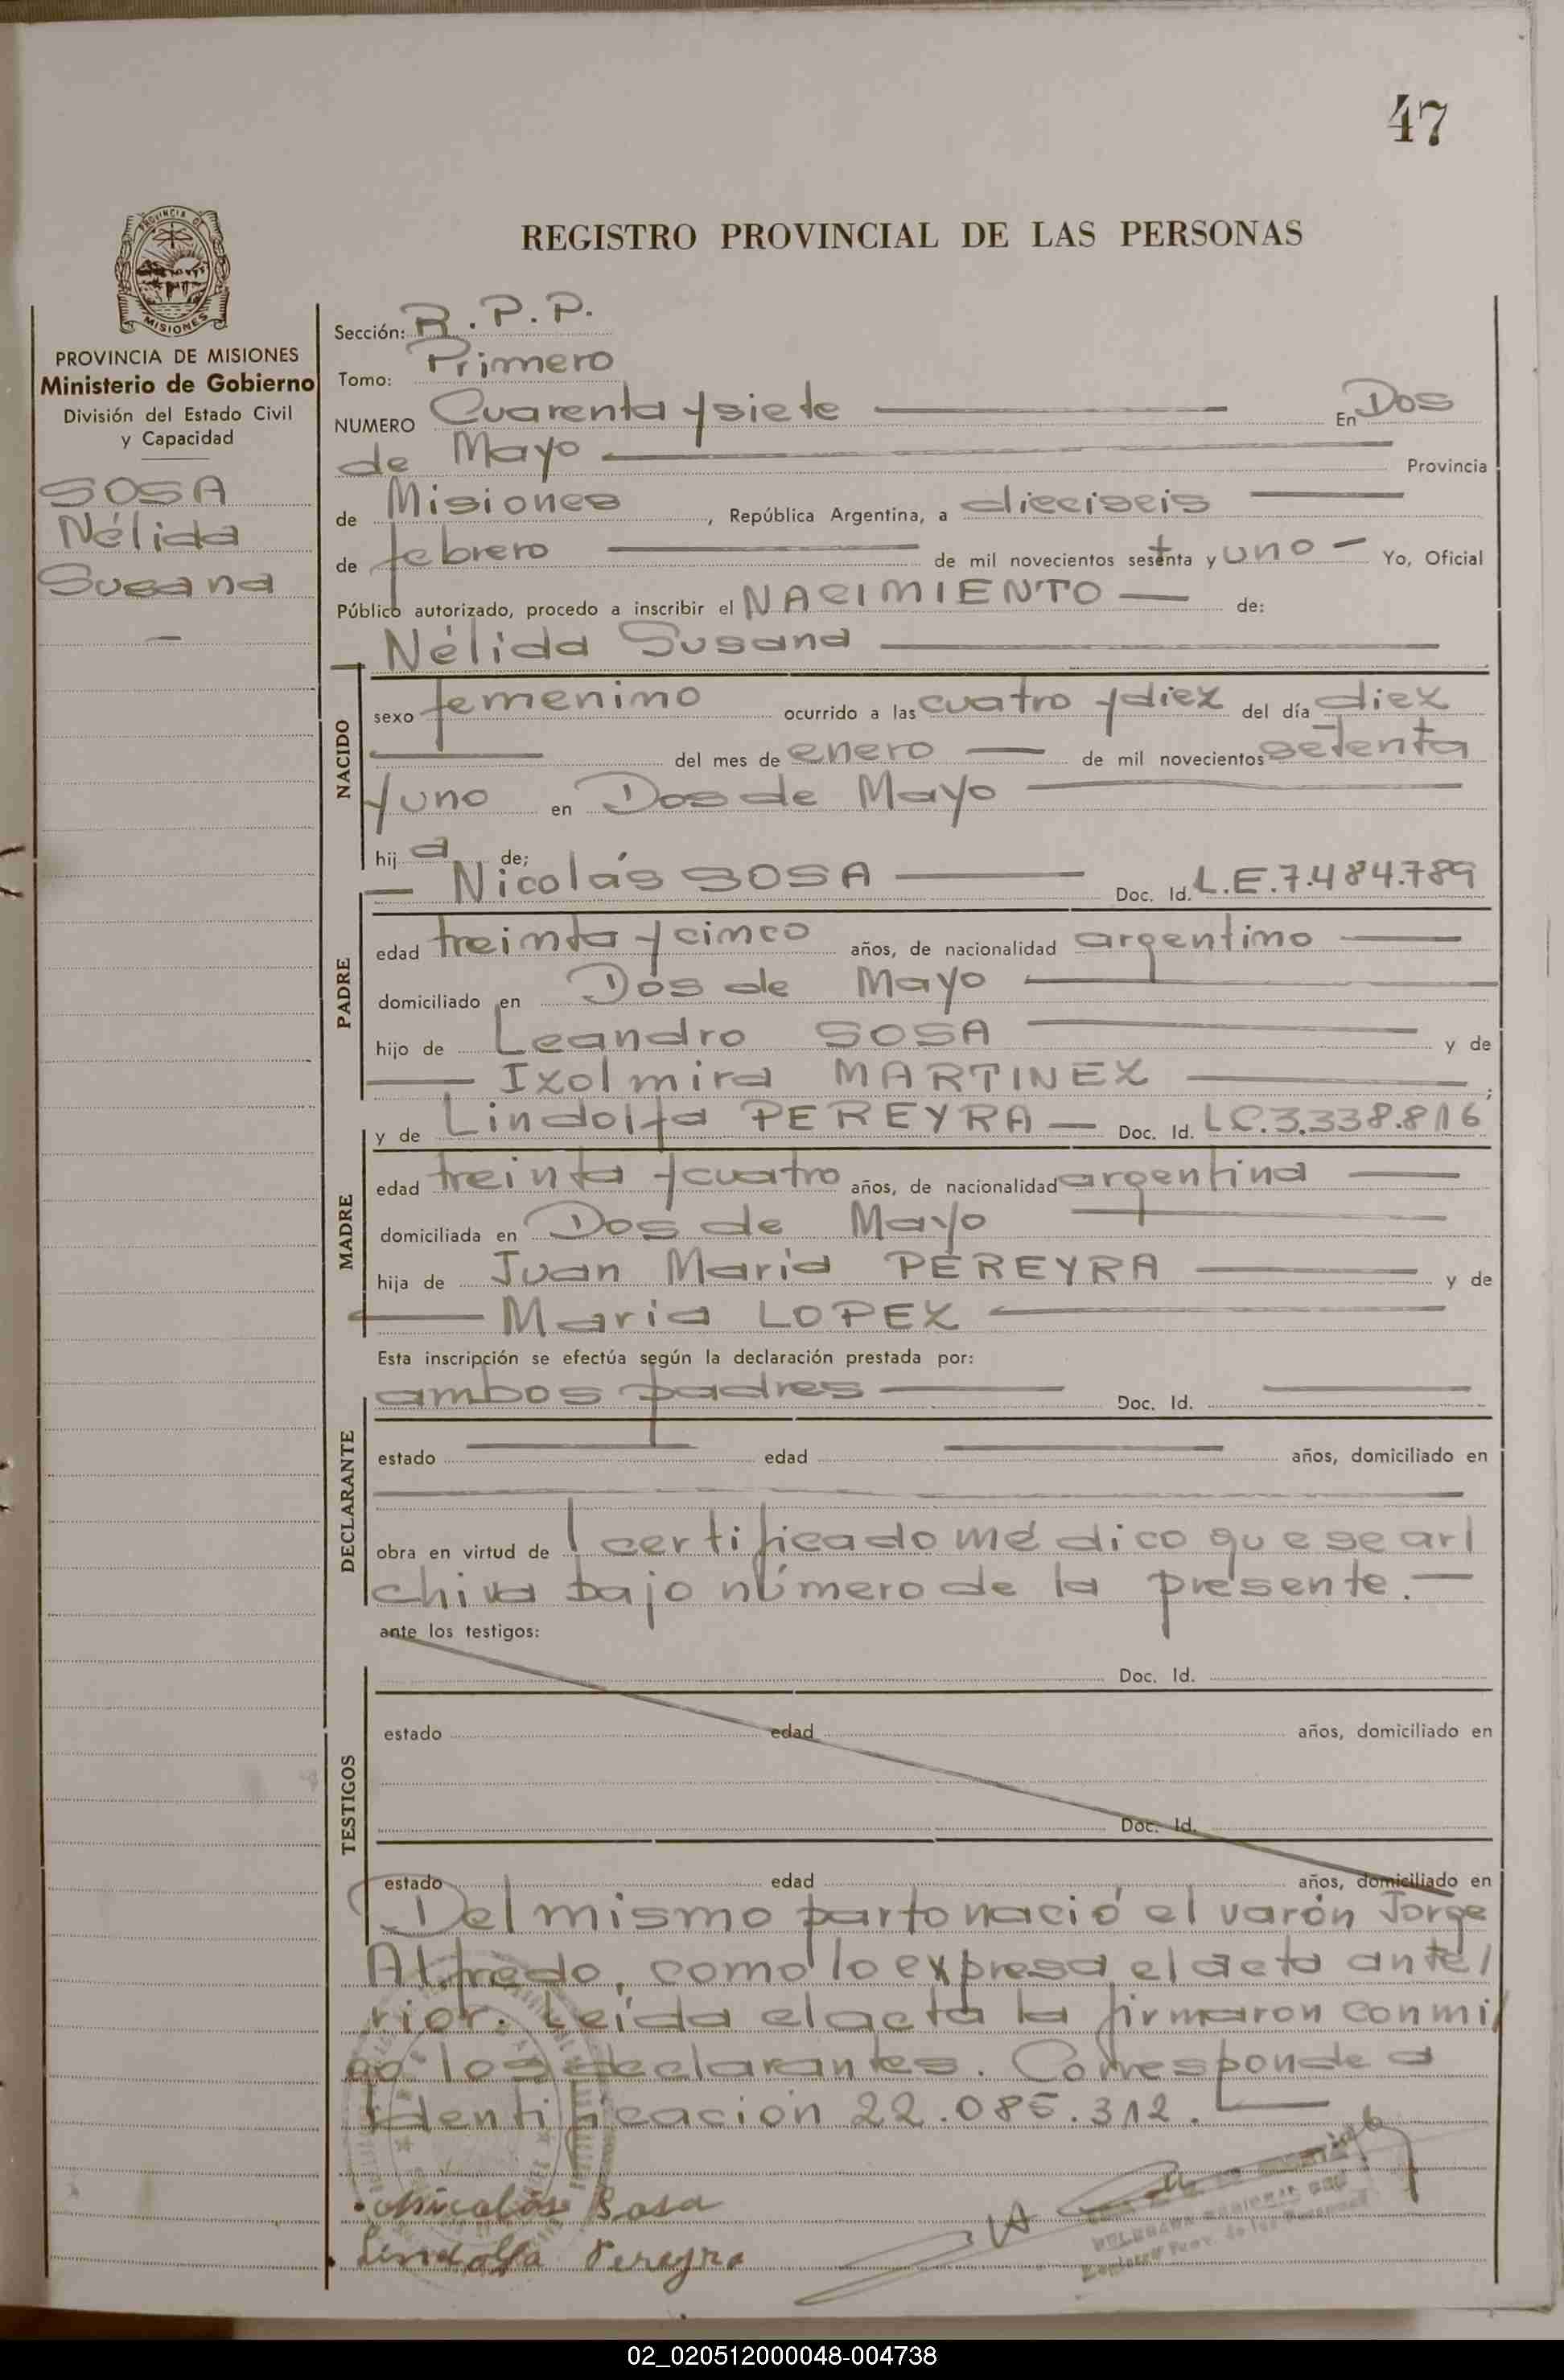 47
REGISTRO PROVINCIAL DE LAS PERSONAS
PROVINCIA DE MISIONES
PROVINCIA DE MISIONES
Ministerio de Gobierno
División del Estado Civil
y Capacidad
SOSA
Nélida
Susana
Sección: R.P.P.
Tomo: Primero
NUMERO Cuarenta y siete En Dos
de Mayo Provincia
de Misiones, República Argentina, a dieciseis
de febrero de mil novecientos setenta y uno Yo, Oficial
Público autorizado, procedo a inscribir el NACIMIENTO de:
Nélida Susana
NACIDO
sexo femenino ocurrido a las cuatro y diez del día diez
del mes de enero de mil novecientos setenta
y uno en Dos de Mayo
hija de;
Nicolás SOSA Doc. Id. L.E.7.484.789
PADRE
edad treinta y cinco años, de nacionalidad argentino
domiciliado en Dos de Mayo
hijo de Leandro SOSA y de
Ixolmira MARTINEX;
y de Lindolfa PEREYRA Doc. Id. LC.3.338.816
MADRE
edad treinta y cuatro años, de nacionalidad argentina
domiciliada en Dos de Mayo
hija de Juan María PEREYRA y de
María LOPEX
Esta inscripción se efectúa según la declaración prestada por:
ambos padres Doc. Id.
DECLARANTE
estado edad años, domiciliado en
obra en virtud de l certificado médico que se ar/
chiva bajo número de la presente.
ante los testigos:
Doc. Id.
TESTIGOS
estado edad años, domiciliado en
Doc. Id.
estado edad años, domiciliado en
Del mismo parto nació el varón Jorge
Alfredo, como lo expresa el acta ante/
rior. Leída el acta la firmaron conmi/
go los declarantes. Corresponde a
Identificación 22.085.312.
Nicolás Sosa
Lindolfa Pereyra
02_020512000048-004738